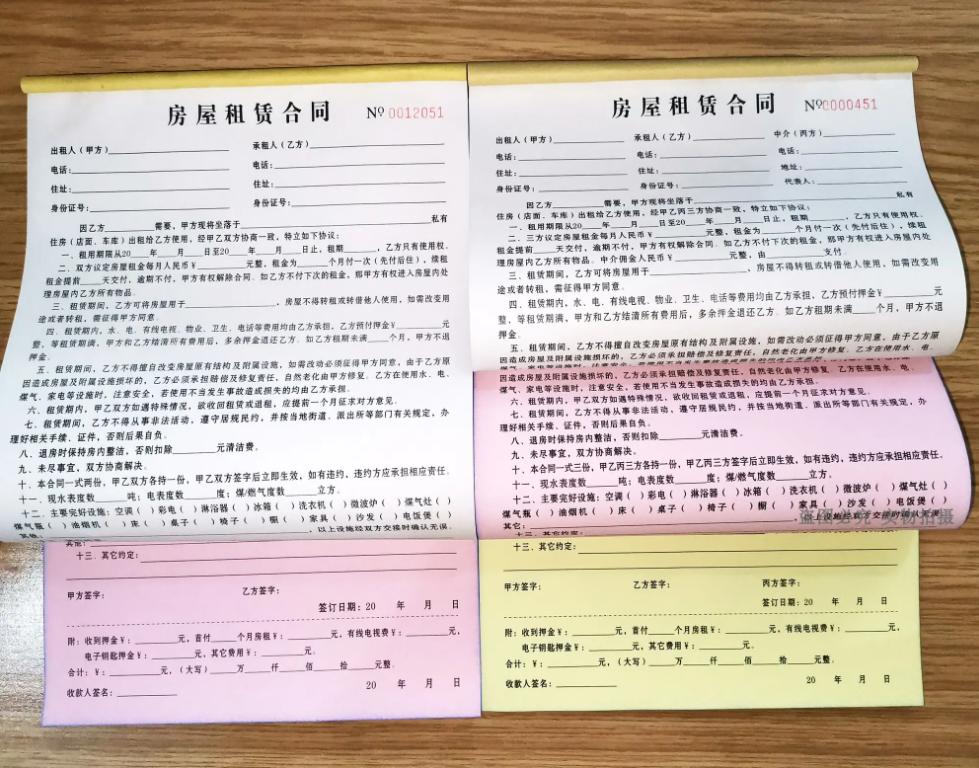 房屋租赁合同 № 0012051
出租人（甲方） 承租人（乙方）
电话： 电话：
住址： 住址：
身份证号： 身份证号：
因乙方 需要，甲方现将坐落于 私有
住房（店面、车库）出租给乙方使用，经甲乙双方协商一致，特立如下协议：
一、租用期限从20 年 月 日至20 年 月 日止，租期 ，乙方只有使用权.
二、双方议定房屋租金每月人民币￥ 元整，租金为 个月付一次（先付后住），续租
租金提前 天交付，逾期不付，甲方有权解除合同. 如乙方不付下次的租金，那甲方有权进入房屋内处
理房屋内乙方所有物品.
三、租赁期间，乙方可将房屋用于 ，房屋不得转租或转借他人使用，如需改变用
途或者转租，需征得甲方同意.
四、租赁期内，水、电、有线电视、物业、卫生、电话等费用均由乙方承担，乙方预付押金￥ 元
整，等租赁期满，甲方和乙方结清所有费用后，多余押金退还乙方. 如乙方租期未满 个月，甲方不退
押金.
五、租赁期间，乙方不得擅自改变房屋原有结构及附属设施，如需改动必须征得甲方同意，由于乙方原
因造成房屋及附属设施损坏的，乙方必须承担赔偿及修复责任，自然老化由甲方修复. 乙方在使用水、电、
煤气、家电等设施时，注意安全，若使用不当发生事故造成或损失的均由乙方承担.
六、租赁期内，甲乙双方如遇特殊情况，欲收回租赁或退租，应提前一个月征求对方意见.
七、租赁期间，乙方不得从事非法活动，遵守居规民约，并按当地街道、派出所等部门有关规定，办
理好相关手续、证件，否则后果自负.
八、退房时保持房内整洁，否则扣除 元清洁费.
九、未尽事宜，双方协商解决.
十、本合同一式两份，甲乙双方各持一份，甲乙双方签字后立即生效，如有违约，违约方应承担相应责任.
十一、现水表度数 吨；电表度数 度；煤/燃气度数 立方.
十二、主要完好设施：空调（ ）彩电（ ）淋浴器（ ）冰箱（ ）洗衣机（ ）微波炉（ ）煤气灶（ ）
煤气瓶（ ）油烟机（ ）床（ ）桌子（ ）椅子（ ）橱（ ）家具（ ）沙发（ ）电饭煲（ ）
其他： ，以上设施经双方交接时确认无误.
其他：
十三、其它约定：
甲方签字： 乙方签字：
签订日期：20 年 月 日
附：收到押金￥： 元，首付 个月房租￥： 元，有线电视费￥： 元，
电子钥匙押金￥： 元，其它费用￥： 元.
合计：￥： 元，（大写） 万 仟 佰 拾 元整.
收款人签名： 20 年 月 日
房屋租赁合同 № 0000451
出租人（甲方） 承租人（乙方） 中介（丙方）
电话： 电话： 电话：
住址： 住址： 地址：
身份证号： 身份证号： 代表人：
因乙方 需要，甲方现将坐落于 私有
住房（店面、车库）出租给乙方使用，经甲乙丙三方协商一致，特立如下协议：
一、租用期限从20 年 月 日至20 年 月 日止，租期 ，乙方只有使用权.
二、三方议定房屋租金每月人民币￥ 元整，租金为 个月付一次（先付后住），续租
租金提前 天交付，逾期不付，甲方有权解除合同. 如乙方不付下次的租金，那甲方有权进入房屋内处
理房屋内乙方所有物品. 中介佣金人民币￥ 元整，由 支付.
三、租赁期间，乙方可将房屋用于 ，房屋不得转租或转借他人使用，如需改变用
途或者转租，需征得甲方同意.
四、租赁期内，水、电、有线电视、物业、卫生、电话等费用均由乙方承担，乙方预付押金￥ 元
整，等租赁期满，甲方和乙方结清所有费用后，多余押金退还乙方. 如乙方租期未满 个月，甲方不退
押金.
五、租赁期间，乙方不得擅自改变房屋原有结构及附属设施，如需改动必须征得甲方同意，由于乙方原
因造成房屋及附属设施损坏的，乙方必须承担赔偿及修复责任，自然老化由甲方修复. 乙方在使用水、电、
因造成房屋及附属设施损坏的，乙方必须承担赔偿及修复责任，自然老化由甲方修复. 乙方在使用水、电、
煤气、家电等设施时，注意安全，若使用不当发生事故造成或损失的均由乙方承担.
六、租赁期内，甲乙双方如遇特殊情况，欲收回租赁或退租，应提前一个月征求对方意见.
七、租赁期间，乙方不得从事非法活动，遵守居规民约，并按当地街道、派出所等部门有关规定，办
理好相关手续、证件，否则后果自负.
八、退房时保持房内整洁，否则扣除 元清洁费.
九、未尽事宜，双方协商解决.
十、本合同一式三份，甲乙丙三方各持一份，甲乙丙三方签字后立即生效，如有违约，违约方应承担相应责任.
十一、现水表度数 吨；电表度数 度；煤/燃气度数 立方.
十二、主要完好设施：空调（ ）彩电（ ）淋浴器（ ）冰箱（ ）洗衣机（ ）微波炉（ ）煤气灶（ ）
煤气瓶（ ）油烟机（ ）床（ ）桌子（ ）椅子（ ）橱（ ）家具（ ）沙发（ ）电饭煲（ ）
其它： ，以上设施经双方交接时确认无误.
十三、其它约定：
十三、其它约定：
甲方签字： 乙方签字： 丙方签字：
签订日期：20 年 月 日
附：收到押金￥： 元，首付 个月房租￥： 元，有线电视费￥： 元，
电子钥匙押金￥： 元，其它费用￥： 元.
合计：￥： 元，（大写） 万 仟 佰 拾 元整.
收款人签名： 20 年 月 日